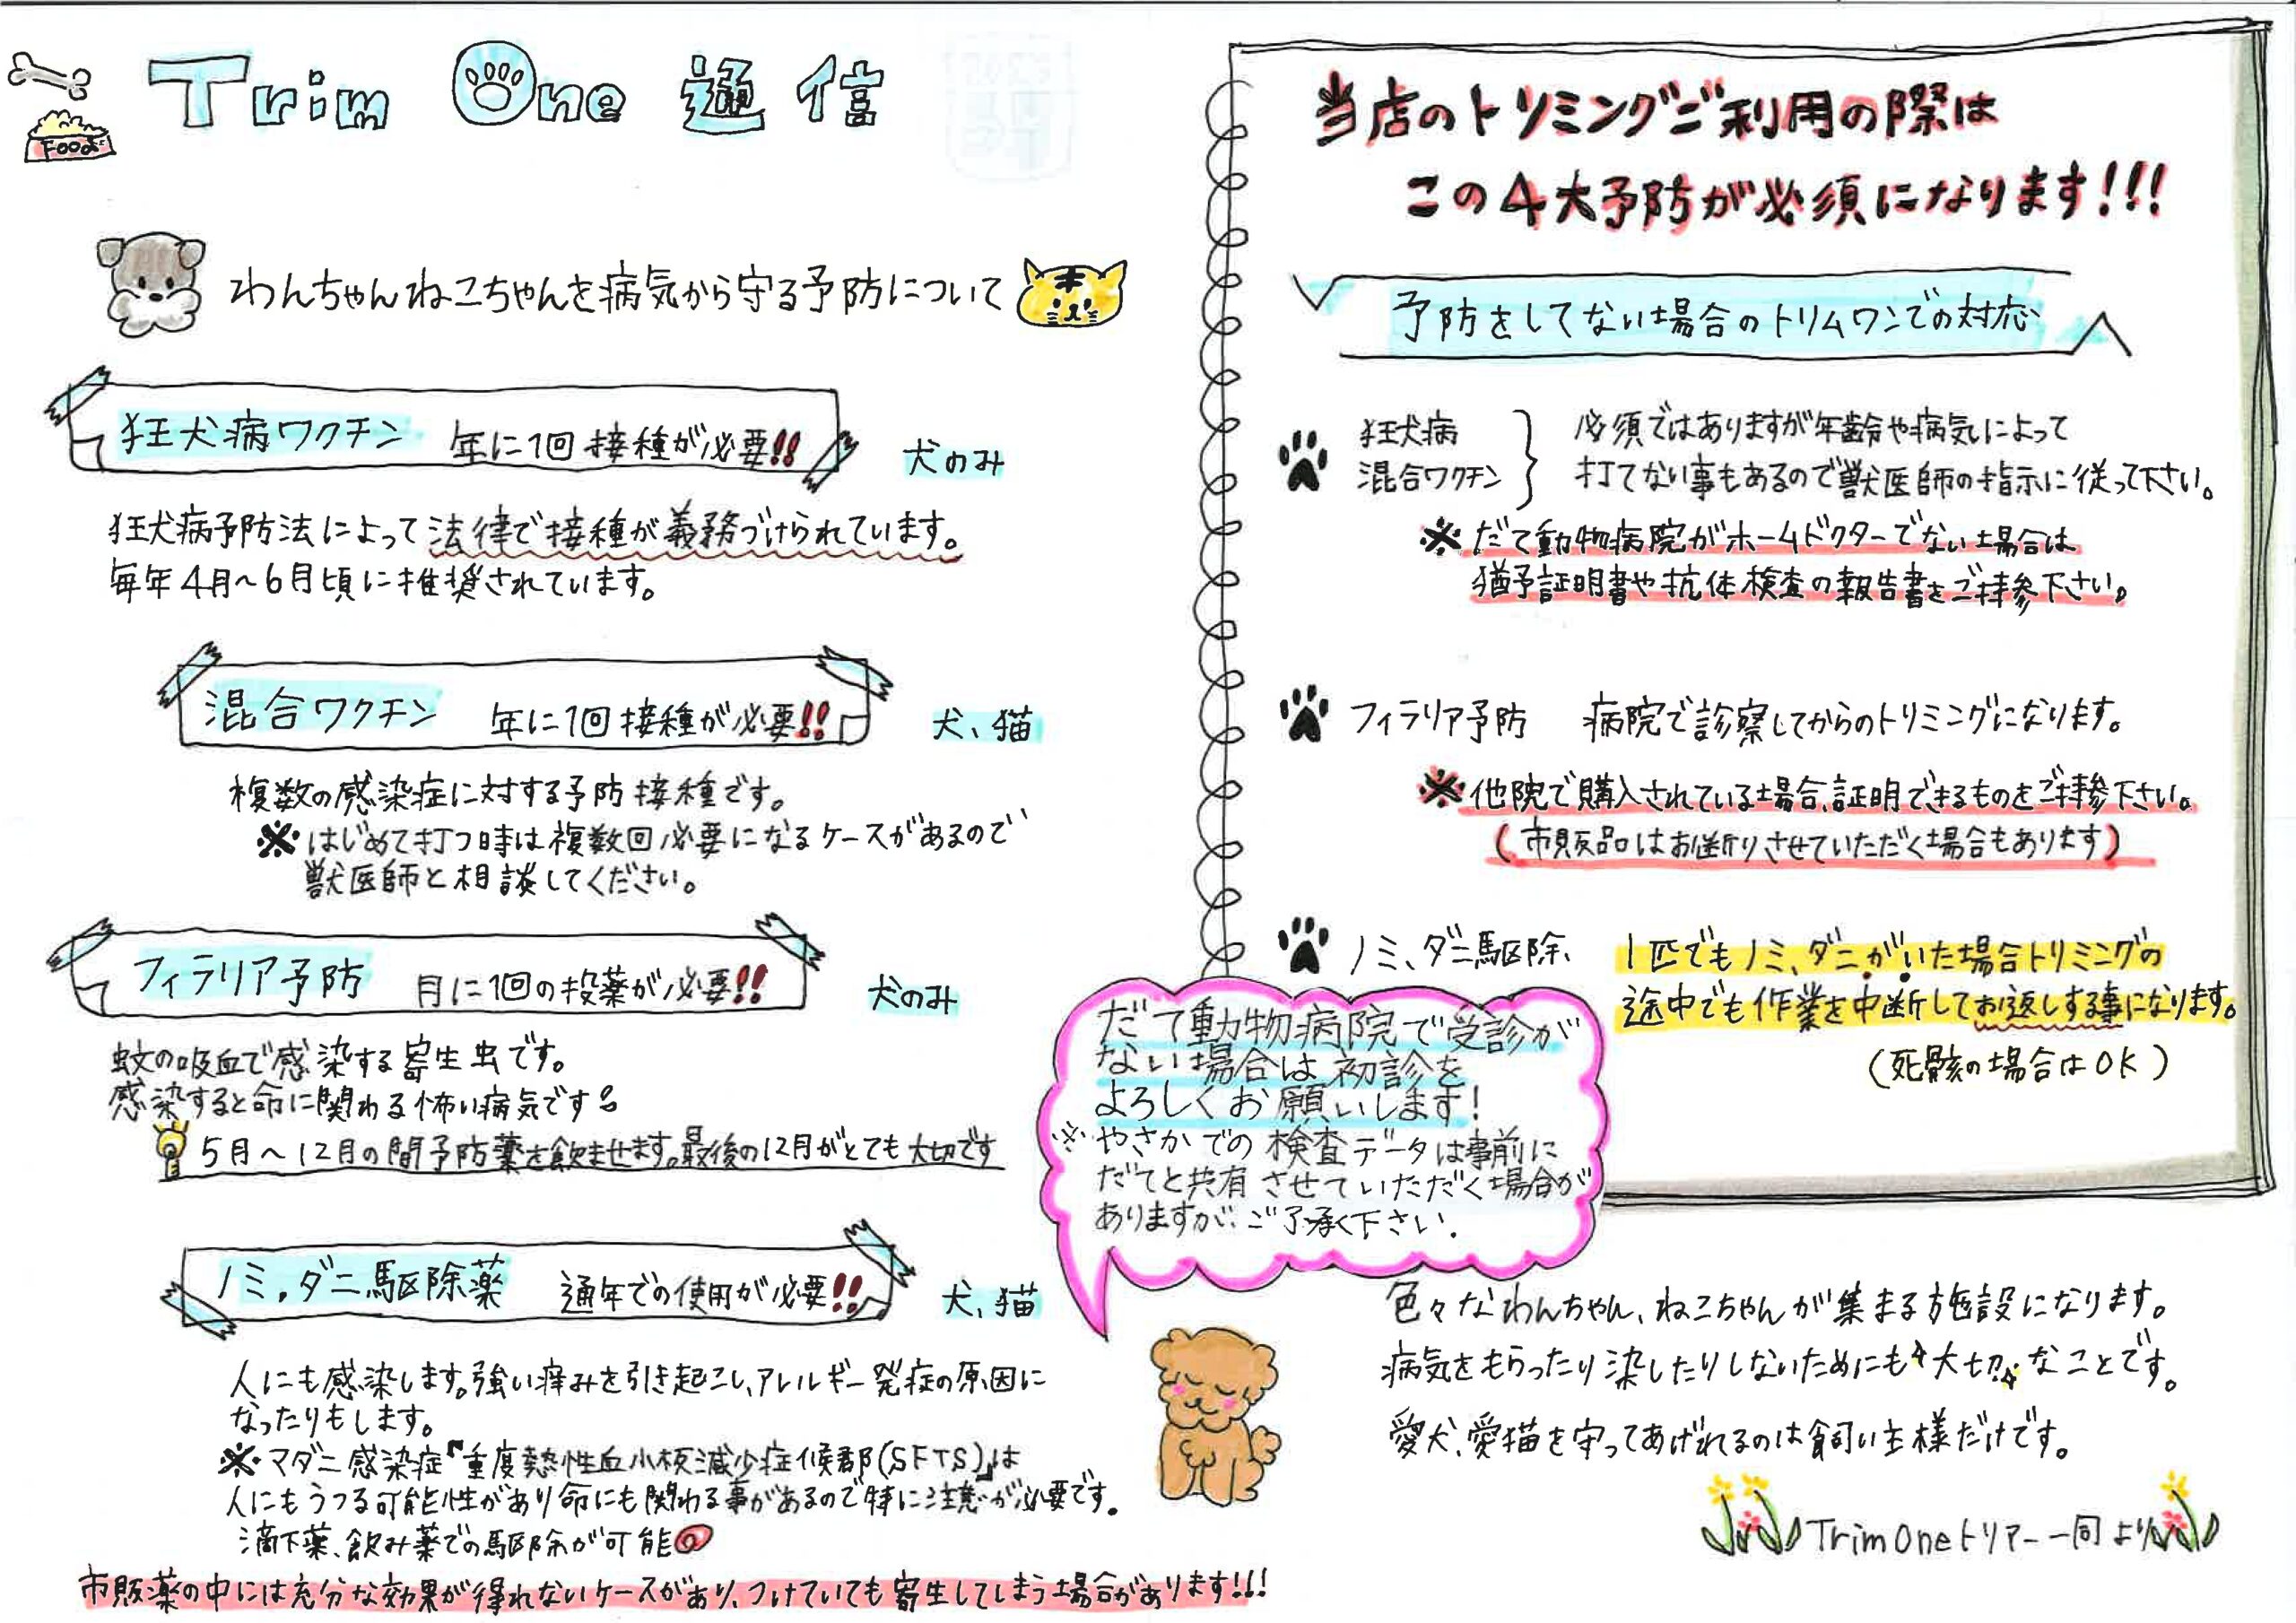 Trim One 通信
FOOD
わんちゃんねこちゃんを病気から守る予防について
狂犬病ワクチン 年に1回接種が必要!! 犬のみ
狂犬病予防法によって法律で接種が義務づけられています。
毎年4月～6月頃に推奨されています。
混合ワクチン 年に1回接種が必要!! 犬、猫
複数の感染症に対する予防接種です。
※はじめて打つ時は複数回必要になるケースがあるので
獣医師と相談してください。
フィラリア予防 月に1回の投薬が必要!! 犬のみ
蚊の吸血で感染する寄生虫です。
感染すると命に関わる怖い病気です
5月～12月の間予防薬を飲ませます。最後の12月がとても大切です
ノミ,ダニ駆除薬 通年での使用が必要!! 犬、猫
人にも感染します。強い痒みを引き起こし、アレルギー発症の原因に
なったりもします。
※マダニ感染症『重度熱性血小板減少症候群(SFTS)』は
人にもうつる可能性があり命にも関わる事があるので特に注意が必要です。
滴下薬、飲み薬での駆除が可能
市販薬の中には充分な効果が得れないケースがあり、つけていても寄生してしまう場合があります!!!
当店のトリミングご利用の際は
この4大予防が必須になります!!!
予防をしてない場合のトリムワンでの対応
狂犬病
混合ワクチン
必須ではありますが年齢や病気によって
打てない事もあるので獣医師の指示に従って下さい。
※だて動物病院がホームドクターでない場合は
猶予証明書や抗体検査の報告書をご持参下さい。
フィラリア予防 病院で診察してからのトリミングになります。
※他院で購入されている場合、証明できるものをご持参下さい。
(市販品はお断りさせていただく場合もあります)
ノミ、ダニ駆除、 1匹でもノミ、ダニがいた場合トリミングの
途中でも作業を中断してお返しする事になります。
(死骸の場合はOK)
だて動物病院で受診が
ない場合は初診を
よろしくお願いします!
※やさかでの検査データは事前に
だてと共有させていただく場合が
ありますが、ご了承下さい.
色々なわんちゃん、ねこちゃんが集まる施設になります。
病気をもらったり染したりしないためにも大切なことです。
愛犬、愛猫を守ってあげれるのは飼い主様だけです。
Trim Oneトリマー一同より